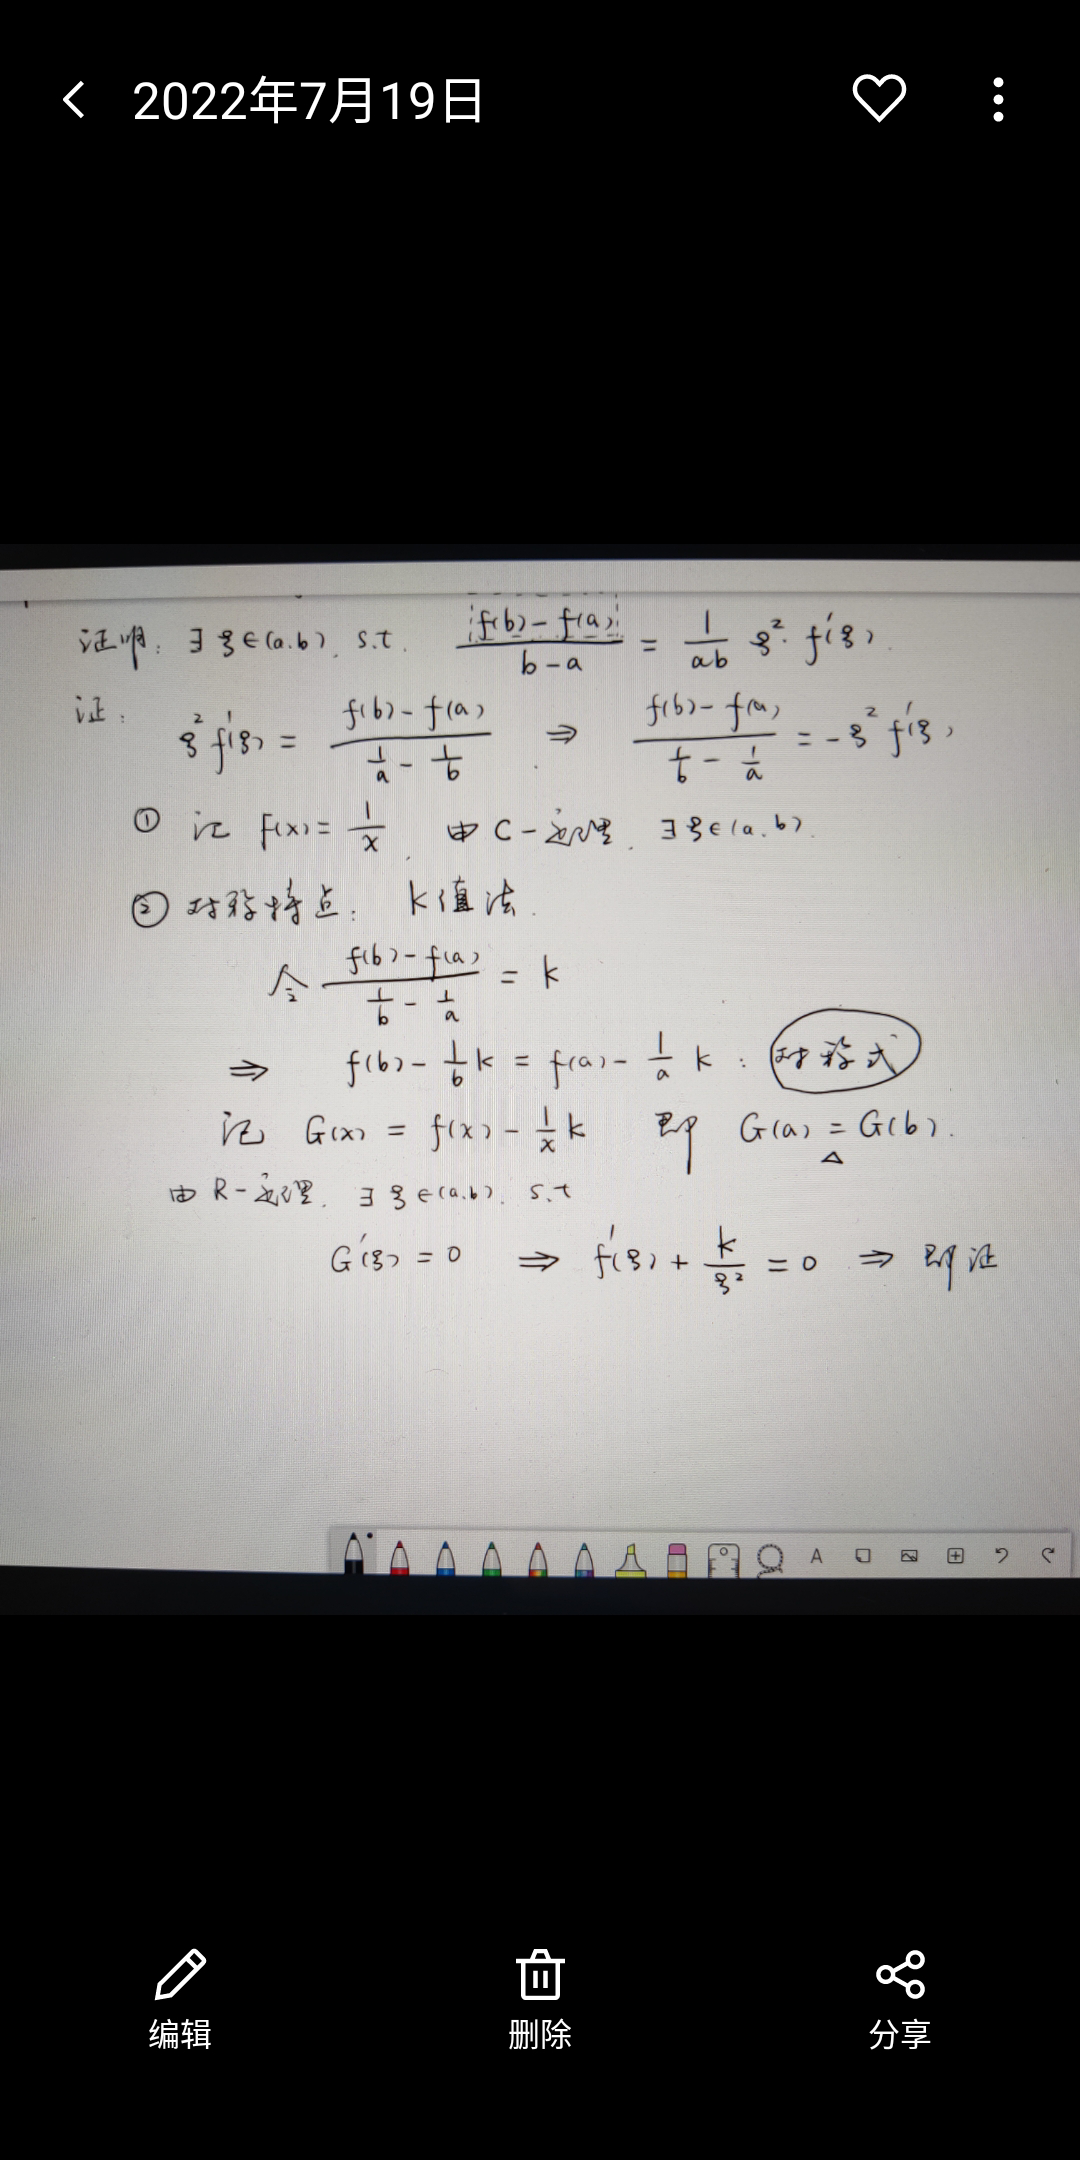 2022年7月19日
证明: ∃ ξ∈(a.b). s.t. (f(b)-f(a))/(b-a) = 1/(ab) ξ²· f'(ξ).
证: ξ² f'(ξ) = (f(b)-f(a))/(1/a - 1/b) ⇒ (f(b)-f(a))/(1/b - 1/a) = -ξ² f'(ξ)
① 记 f(x)= 1/x. 由 C-定理. ∃ ξ∈(a.b).
② 对称特点: k值法.
令 (f(b)-f(a))/(1/b - 1/a) = k
⇒ f(b) - 1/b k = f(a) - 1/a k : 对称式
记 G(x) = f(x) - 1/x k 即 G(a) = G(b).
△
由 R-定理. ∃ ξ∈(a.b). s.t
G'(ξ) = 0 ⇒ f'(ξ) + k/ξ² = 0 ⇒ 即证
A
编辑 删除 分享